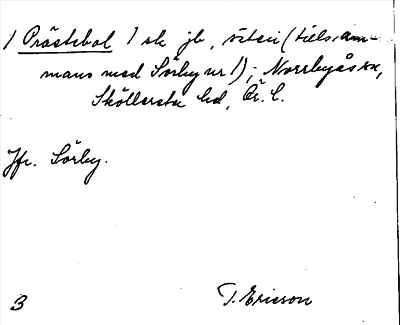 1 Prästebol 1 sk jb, (tillsam-
mans med Sörby nr 1); Norrbyås sn,
Sköllersta hd, Ör. l.
Jfr. Sörby.
3 T. Ericson